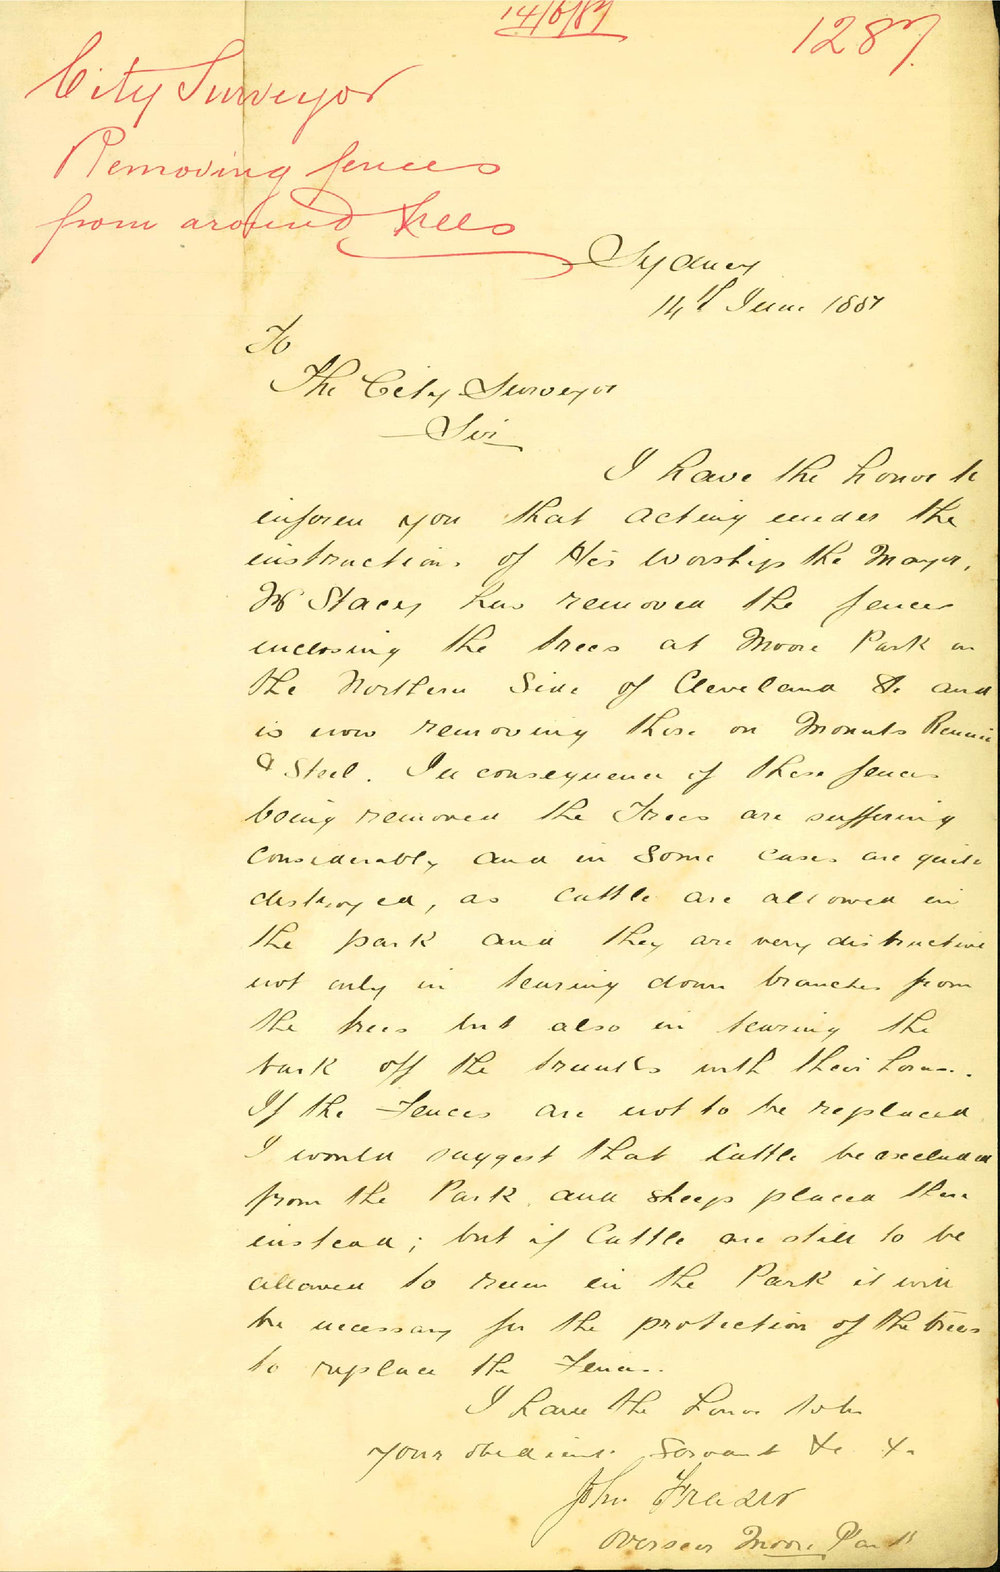 14/6/87
1287.
City Surveyor
Removing fences
from around trees
Sydney
14th June 1887
To
The City Surveyor
Sir
I have the honor to
inform you that acting under the
instructions of His Worship the Mayor,
Mr Stacey has removed the fences
inclosing the trees at Moore Park on
the Northern Side of Cleveland St. and
is now removing those on Mounts Rennie
& Steel. In consequence of these fences
being removed the Trees are suffering
considerably and in Some cases are quite
destroyed, as cattle are allowed in
the park and they are very distructive
not only in tearing down branches from
the trees but also in tearing the
bark off the trunks with their horns.
If the Fences are not to be replaced
I would suggest that Cattle be excluded
from the Park and sheep placed there
instead; but if Cattle are still to be
allowed to run in the Park it will
be necessary for the protection of the trees
to replace the Fences.
I have the honor to be
your obedient Servant &c &c
John Frazer
Overseer Moore Park